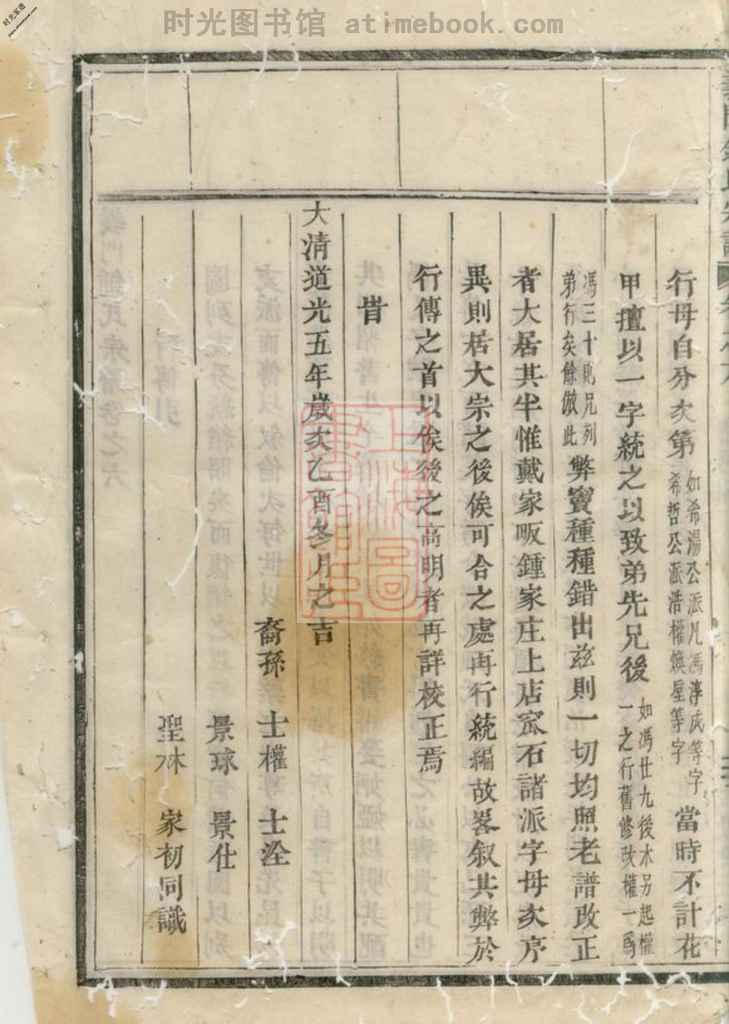 时光图书馆 atimebook.com
行母自分次第如希湯公派凡馮淳成等字希哲公派浩權煥星等字當時不計花
甲擅以一字統之以致弟先兄後如馮廿九後木另起權一之行舊修改權一爲
馮三十則兄列弟行矣餘倣此弊竇種種錯出茲則一切均照老譜改正
者大居其半惟戴家畈鍾家庄上店窊石諸派字母次序
異則居大宗之後俟可合之處再行統編故畧叙其弊於
行傳之首以俟後之高明者再詳校正焉
旹
大清道光五年歲次乙酉冬月之吉
裔孫 士權 士洤
景球 景仕
聖林 家初同識